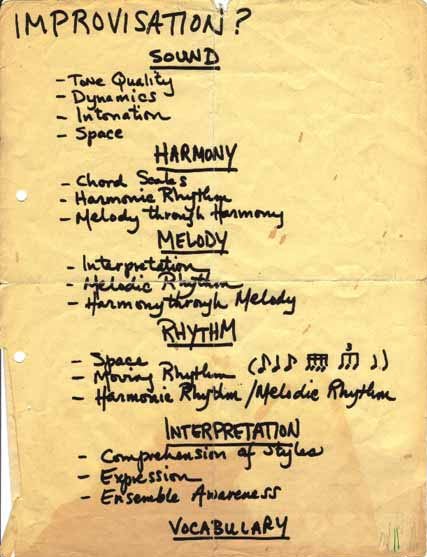 IMPROVISATION?
SOUND
- Tone Quality
- Dynamics
- Intonation
- Space
HARMONY
- Chord Scales
- Harmonic Rhythm
- Melody through Harmony
MELODY
- Interpretation
- Melodic Rhythm
- Harmony through Melody
RHYTHM
- Space
- Moving Rhythm (♪♩♪ 3 ♩.)
- Harmonic Rhythm / Melodic Rhythm
INTERPRETATION
- Comprehension of Styles
- Expression
- Ensemble Awareness
VOCABULARY